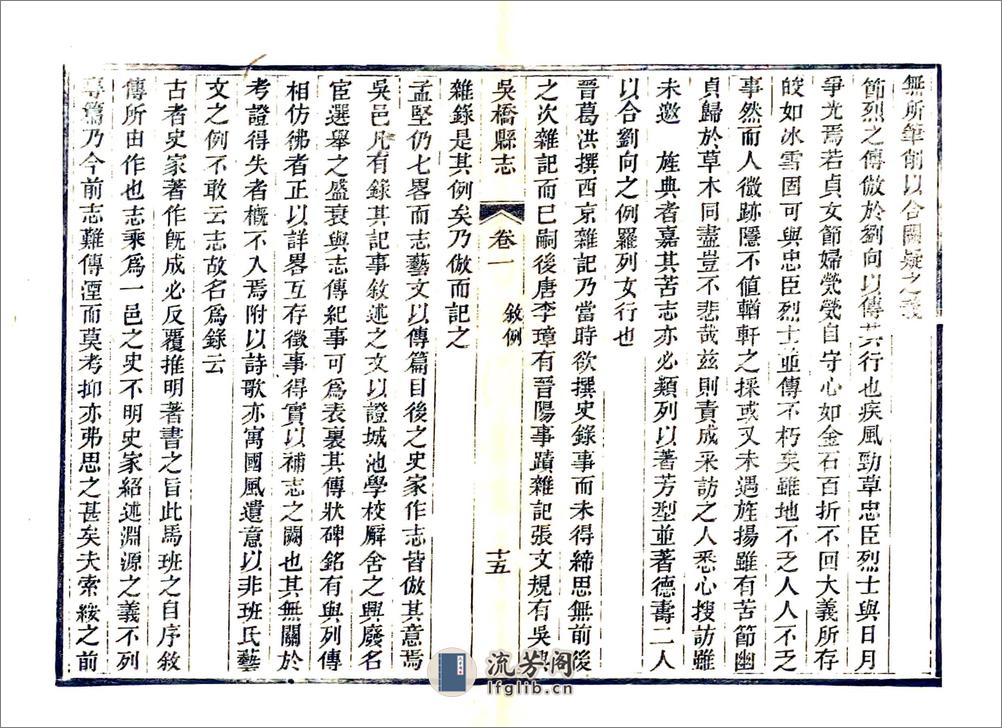 無所筆削以合闕疑之義
節烈之傳倣於劉向以傳其行也疾風勁草忠臣烈士與日月
爭光焉若貞女節婦煢煢自守心如金石百折不回大義所存
皎如冰雪固可與忠臣烈士並傳不朽矣雖地不乏人人不乏
事然而人微跡隱不值輶軒之採或又未遇旌揚雖有苦節幽
貞歸於草木同盡豈不悲哉茲則責成采訪之人悉心搜訪雖
未邀 旌典者嘉其苦志亦必類列以著芳型並著德壽二人
以合劉向之例羅列女行也
晉葛洪撰西京雜記乃當時欲撰史錄事而未得締思無前後
之次雜記而已嗣後唐李璋有晉陽事蹟雜記張文規有吳興
雜錄是其例矣乃倣而記之
吳橋縣志 卷一 敘例 十五
孟堅仍七畧而志藝文以傳篇目後之史家作志皆倣其意焉
吳邑凡有錄其記事敘述之文以證城池學校廨舍之興廢名
宦選舉之盛衰與志傳紀事可為表裏其傳狀碑銘有與列傳
相仿彿者正以詳畧互存徵事得實以補志之闕也其無關於
考證得失者槪不入焉附以詩歌亦寓國風遺意以非班氏藝
文之例不敢云志故名為錄云
古者史家著作旣成必反覆推明著書之旨此馬班之自序敘
傳所由作也志乘為一邑之史不明史家紹述淵源之義不列
專篇乃令前志難傳湮而莫考抑亦弗思之甚矣夫索綏之前
流芳閣
lfglib.cn